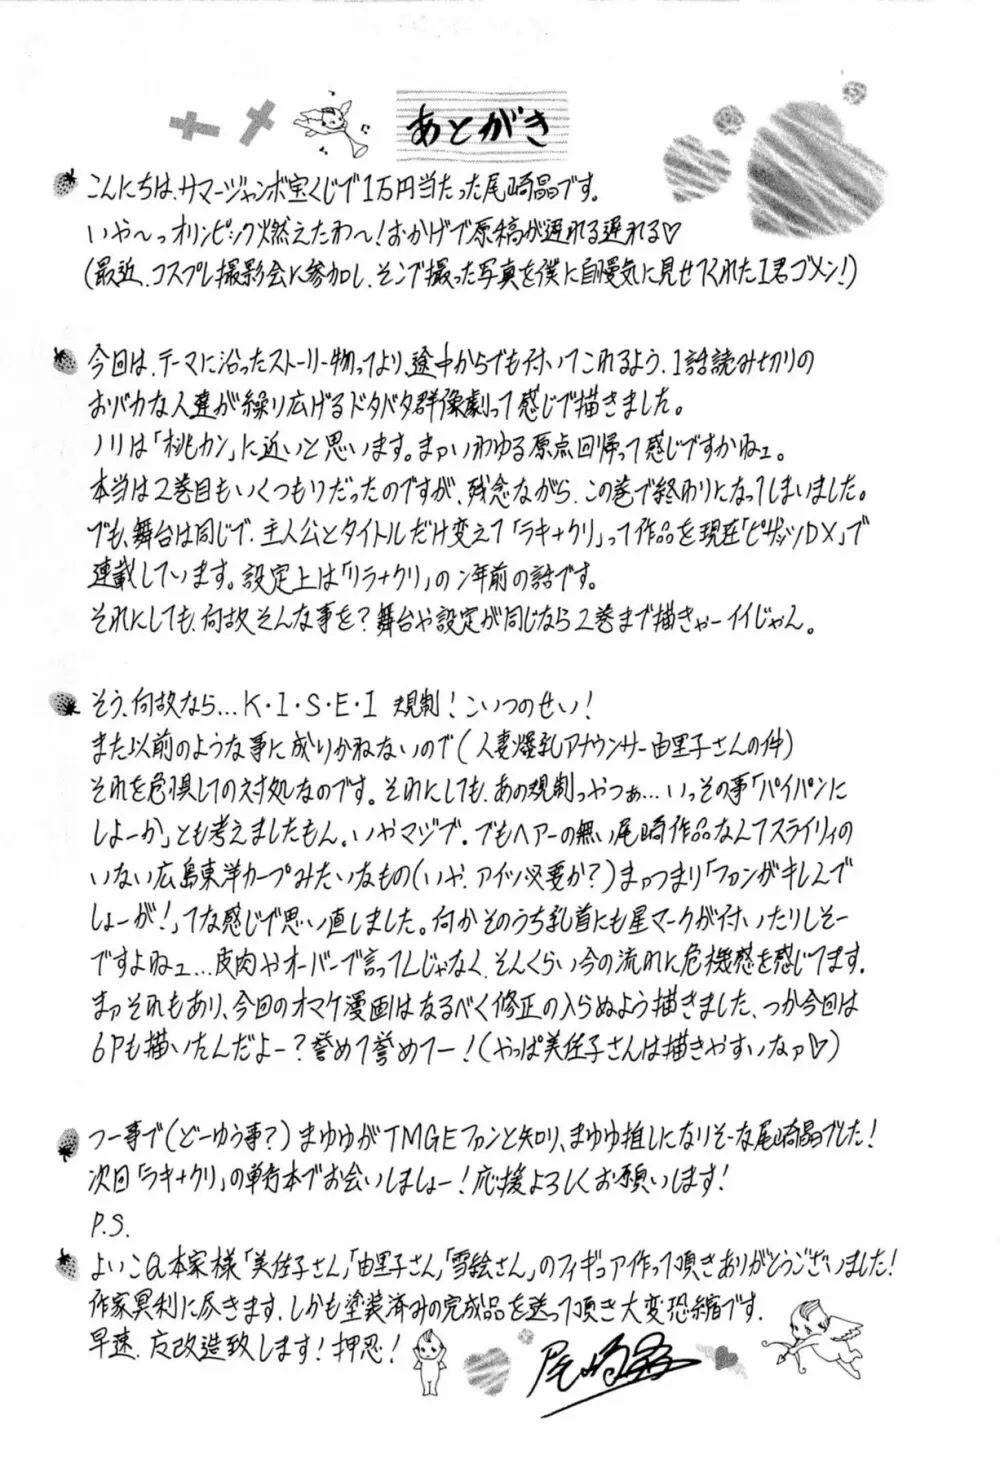 あとがき
こんにちは、サマージャンボ宝くじで1万円当たった尾崎晶です。
いや〜っオリンピック燃えたわ〜!おかげで原稿が遅れる遅れる♡
(最近、コスプレ撮影会に参加し、そこで撮った写真を僕に自慢気に見せてくれたI君ゴメン!)
今回は、テーマに沿ったストーリー物ってより、途中からでも付いてこれるよう、1話読み切りの
おバカな人達が繰り広げるドタバタ群像劇って感じで描きました。
ノリは「桃カン」に近いと思います。まァいわゆる原点回帰って感じですかねェ。
本当は2巻目もいくつもりだったのですが、残念ながら、この巻で終わりになってしまいました。
でも、舞台は同じで、主人公とタイトルだけ変えて「ラキ+クリ」って作品を現在「ピザッツDX」で
連載しています。設定上は「リラ+クリ」の2年前の話です。
それにしても、何故そんな事を?舞台や設定が同じなら2巻まで描きゃーイイじゃん。
そう、何故なら…K・I・S・E・I 規制!こいつのせい!
また以前のような事に成りかねないので(人妻爆乳アナウンサー由里子さんの件)
それを危惧しての対処なのです。それにしても、あの規制っやつぁ…いっその事「パイパンに
しよーか」とも考えましたもん。いやマジで。でもヘアーの無い尾崎作品なんてスライリィの
いない広島東洋カープみたいなもの(いや、アイツ必要か?)まァつまり「ファンがキレんで
しょーが!」てな感じで思い直しました。何かそのうち乳首にも星マークが付いたりしそー
ですよねェ…皮肉やオーバーで言ってんじゃなく、そんくらい今の流れに危機感を感じてます。
まァそれもあり、今回のオマケ漫画はなるべく修正の入らぬよう描きました、つか今回は
6Pも描いたんだよー?誉めて誉めてー!(やっぱ美佐子さんは描きやすいなァ♡)
つー事で(どーゆう事?)まゆゆがTMGEファンと知り、まゆゆ推しになりそーな尾崎晶でした!
次回「ラキ+クリ」の単行本でお会いしましょー!応援よろしくお願いします!
P.S.
よいこQ本家様「美佐子さん」「由里子さん」「雪絵さん」のフィギュア作って頂きありがとうございました!
作家冥利に尽きます、しかも塗装済みの完成品を送って頂き大変恐縮です.
早速、友改造致します!押忍!